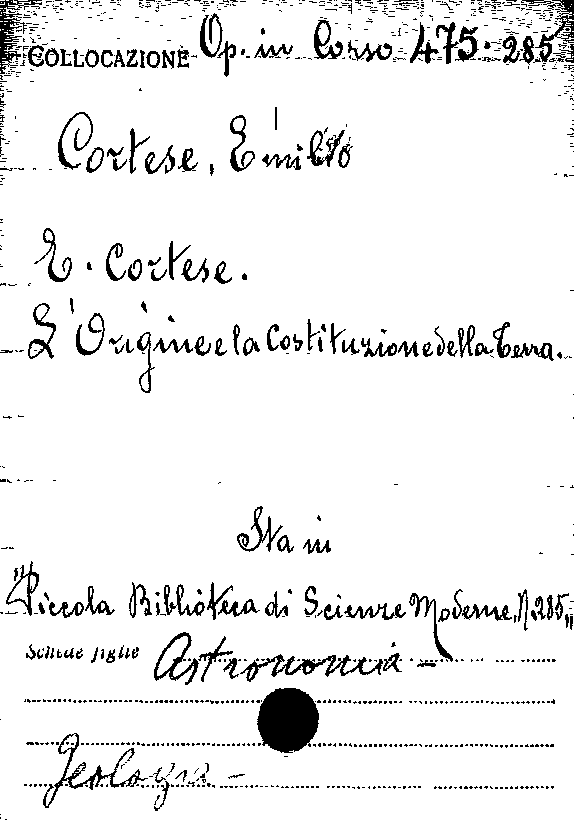 COLLOCAZIONE Op. in Corso 475.285
Cortese, Emilio
E. Cortese.
L'Origine e la Costituzione della Terra.
Sta in
"Piccola Biblioteca di Scienze Moderne, N. 285"
Schede figlie Astronomia -
Geologia -